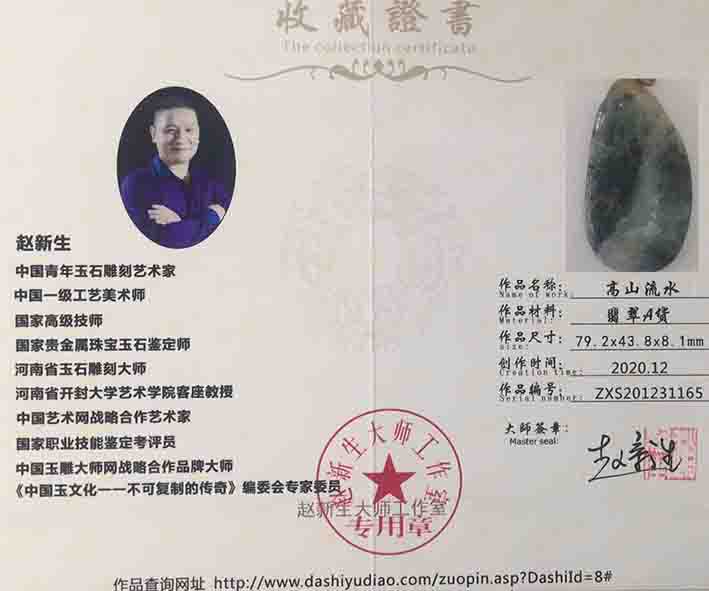 收藏證書
The collection certificate
赵新生
中国青年玉石雕刻艺术家
中国一级工艺美术师
国家高级技师
国家贵金属珠宝玉石鉴定师
河南省玉石雕刻大师
河南省开封大学艺术学院客座教授
中国艺术网战略合作艺术家
国家职业技能鉴定考评员
中国玉雕大师网战略合作品牌大师
《中国玉文化一一不可复制的传奇》编委会专家委员
作品名称: 高山流水
Name of work:
作品材料: 翡翠A货
Material:
作品尺寸: 79.2x43.8x8.1mm
size:
创作时间: 2020.12
Creation time:
作品编号: ZXS201231165
Serial number:
大师签章:
Master seal:
赵新生
赵新生大师工作室
专用章
赵新生大师工作室
作品查询网址 http://www.dashiyudiao.com/zuopin.asp?DashiId=8#